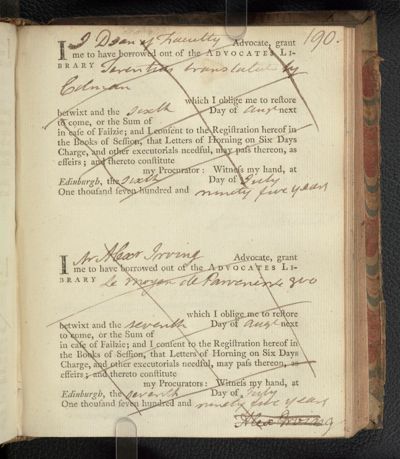 190.
I Dean of Faculty Advocate, grant
me to have borrowed out of the ADVOCATES LI-
BRARY Terentius translated by
Colman
which I oblige me to reſtore
betwixt and the sixth Day of Augt next
to come, or the Sum of
in caſe of Failzie; and I conſent to the Regiſtration hereof in
the Books of Seſſion, that Letters of Horning on Six Days
Charge, and other executorials needful, may paſs thereon, as
effeirs; and thereto conſtitute
my Procurator: Witneſs my hand, at
Edinburgh, the sixth Day of July
One thouſand ſeven hundred and ninety five years
I Mr Alexr Irving Advocate, grant
me to have borrowed out of the ADVOCATES LI-
BRARY Le moyen de Parvenir 8vo
which I oblige me to reſtore
betwixt and the seventh Day of Augt next
to come, or the Sum of
in caſe of Failzie; and I conſent to the Regiſtration hereof in
the Books of Seſſion, that Letters of Horning on Six Days
Charge, and other executorials needful, may paſs thereon, as
effeirs; and thereto conſtitute
my Procurators: Witneſs my hand, at
Edinburgh, the seventh Day of July
One thouſand ſeven hundred and ninety five years
Alex Irving